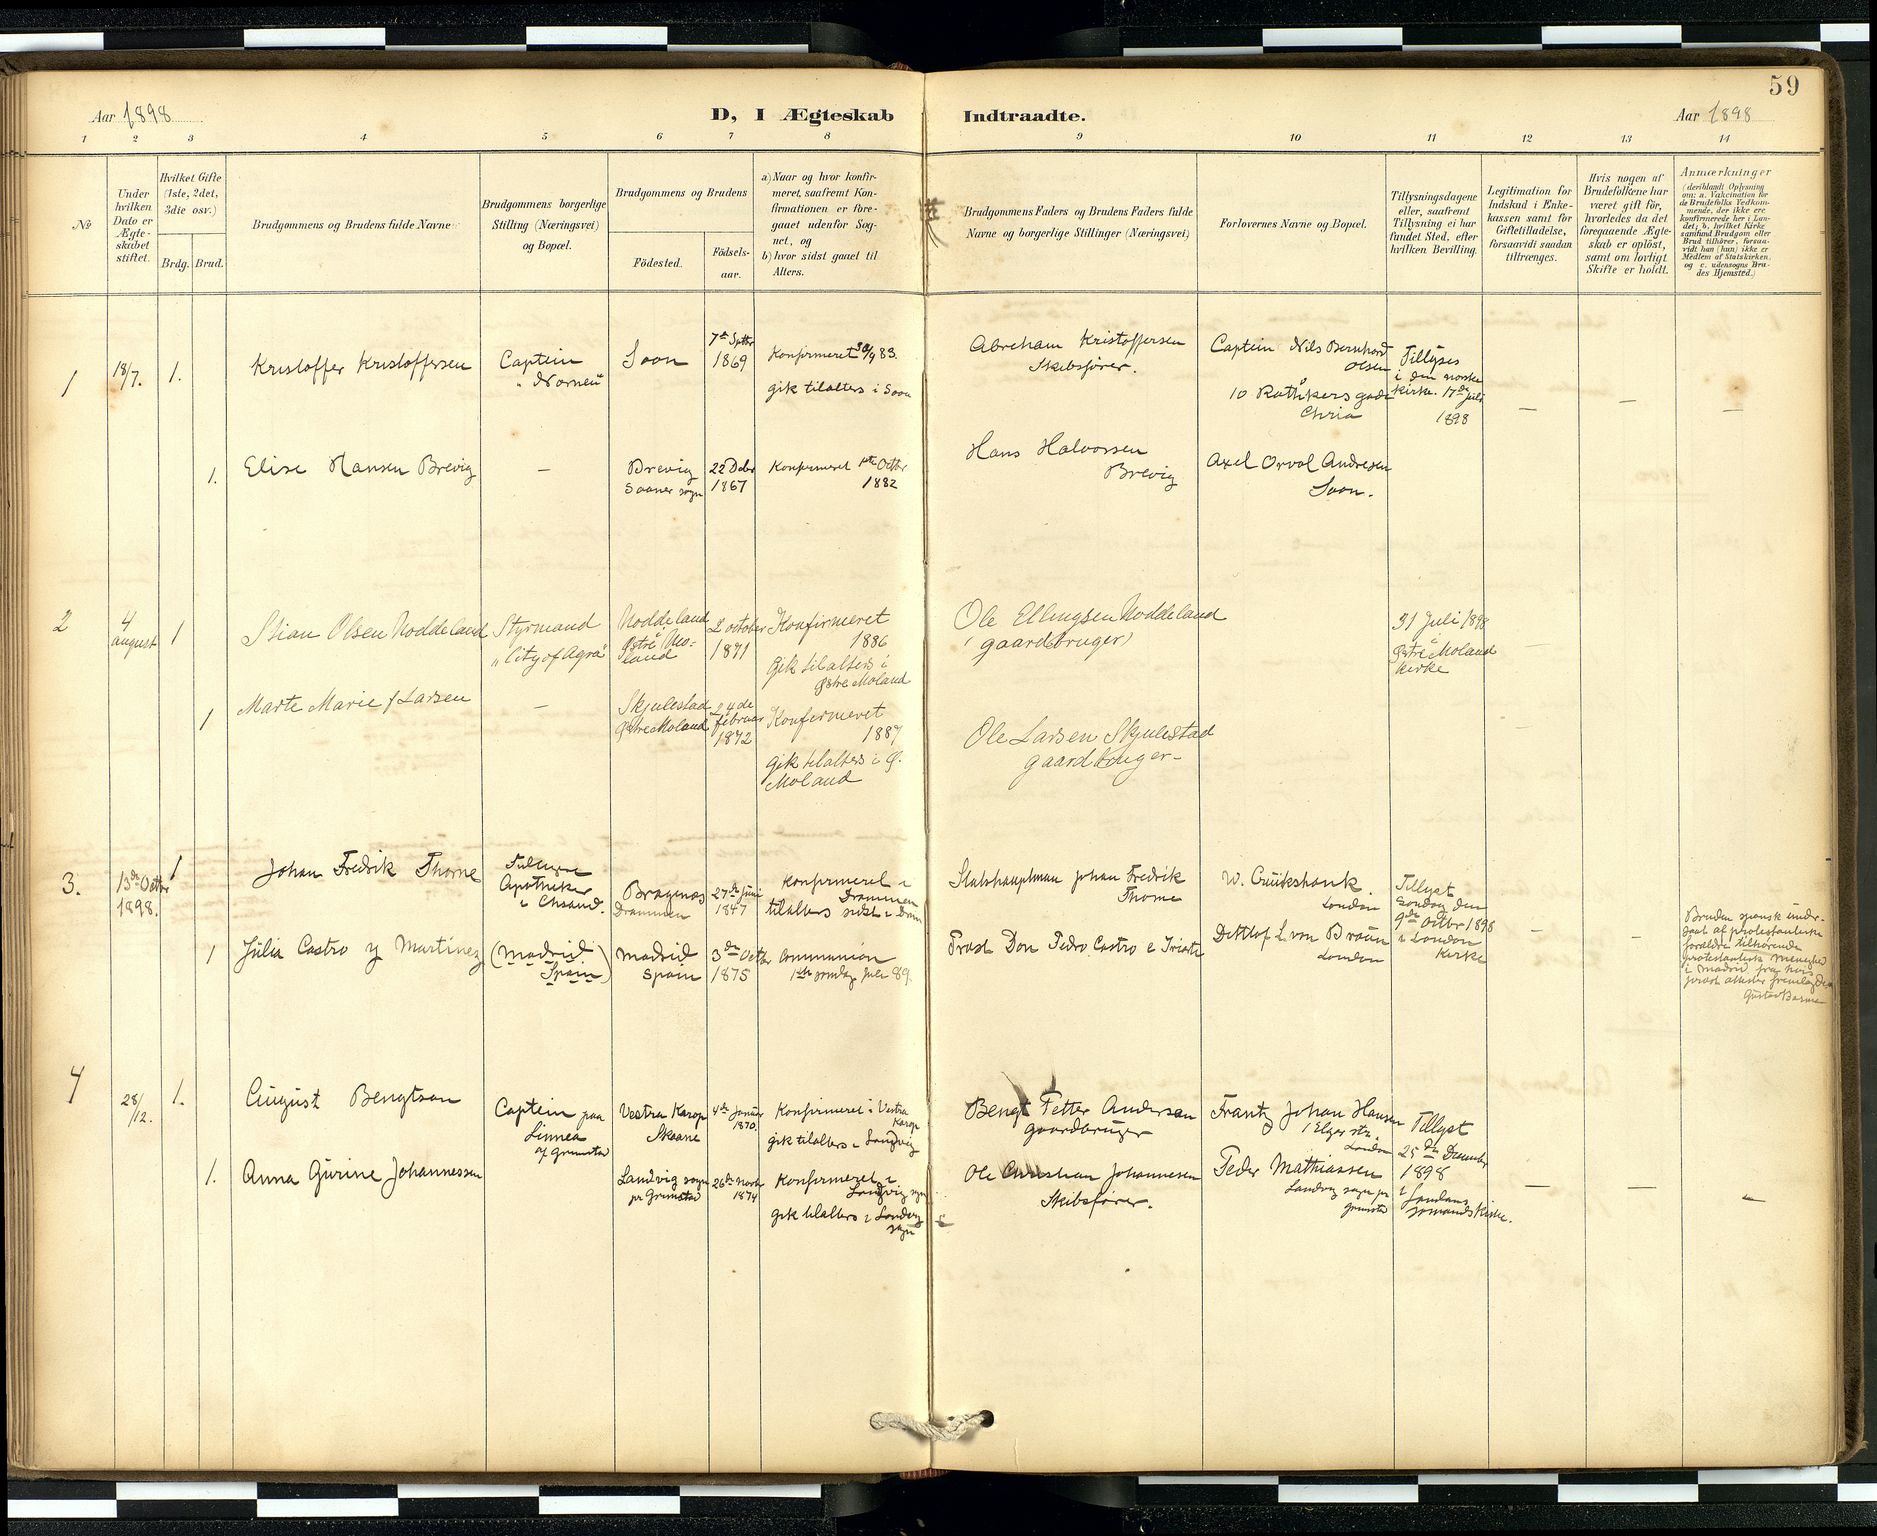 59
Aar 1898
D, I Ægteskab Indtraadte.
Aar 1898
1 2 3 4 5 6 7 8 9 10 11 12 13 14
№
Under hvilken Dato er Ægteskabet stiftet.
Hvilket Gifte (1ste, 2det, 3die osv.)
Brdg. Brud.
Brudgommens og Brudens fulde Navne
Brudgommens borgerlige Stilling (Næringsvei) og Bopæl.
Brudgommens og Brudens
Födested.
Födsels-aar.
a) Naar og hvor konfirmeret, saafremt Konfirmationen er foregaaet udenfor Sognet, og
b) hvor sidst gaaet til Alters.
Brudgommens Faders og Brudens Faders fulde Navne og borgerlige Stillinger (Næringsvei)
Forlovernes Navne og Bopæl.
Tillysningsdagene eller, saafremt Tillysning ei har fundet Sted, efter hvilken Bevilling.
Legitimation for Indskud i Enkekassen samt for Giftetilladelse, forsaavidt saadan tiltrænges.
Hvis nogen af Brudefolkene har været gift för, hvorledes da det foregaaende Ægteskab er oplöst, samt om lovligt Skifte er holdt.
Anmærkninger
(deriblandt Oplysning om: a. Vakcination for de Brudefolks Vedkommende, der ikke ere konfirmerede her i Landet; b. hvilket Kirkesamfund Brudgom eller Brud tilhører, forsaavidt han (hun) ikke er Medlem af Statskirken, og c. udensogns Brudes Hjemsted.)
1
18/7.
1.
Kristoffer Kristoffersen
Captein
"Nornen"
Soon
7de Sptbr
1869
Konfirmeret 30/9 83.
gik tilalters i Soon
Abraham Kristoffersen
Skibsfører.
Captein Nils Bernhard
Olsen
10 Rathkers gade
Chria
Tillyses
i den norske
kirke. 17de Juli
1898
— — —
1.
Elise Hansen Brevig
—
Brevig
Saaner sogn
22 Debr
1867
Konfirmeret 1ste Octbr
1882
Hans Halvorsen
Brevig
Axel Orvol Andresen
Soon.
2
4
august
1
Stian Olsen Noddeland
Styrmand
"City of Agra"
Noddeland
Østre Mo-
land
2 october
1871
Konfirmeret
1886
Gik tilalters i
Østre Moland
Ole Ellingsen Noddeland
(gaardbruger)
31 Juli 1898
i
Østre Moland
Kirke
—
1
Marte Marie f Larsen
—
Skjulestad
Østre Moland
24de
februar
1872
Konfirmeret
1887
gik tilalters i Ø.
Moland
Ole Larsen Skjulestad
gaardbruger
3.
13de Octbr
1898.
1
Johan Fredrik Thorne
Apotheker
i Chsand.
Bragenæs
Drammen
27de Juni
1847
Konfirmeret i
Drammen
tilalters sidst i Drmn
Statshauptman Johan Fredrik
Thorne
W. Cruikshank.
London
Tillyst
Sondag den
9de Octbr 1898
i London
Kirke
— —
1
Júlia Castro y Martinez
(Madrid
Spain)
Madrid
Spain
3de Octbr
1875
Communion
1ste sondag Juli 89.
Præst Don Pedro Castro e Iriarte
Dettlof L. von Braun
London
Bruden spansk under-
saat af protestantiske
forældre tilhörende
protestantisk menighed
i Madrid fra hvis
præst attester fremlagdes
4
28/12.
1.
August Bengtson
Captein paa
Linnea
af Grimstad
Vestra Karop
Skaane
4de Januar
1870.
Konfirmeret i Vestra
Karop
gik tilalters i Landvig
Bengt Petter Anderson
gaardbruger
Frantz Johan Hansen
1 Elgar str.
London
Tillyst
25de December
1898
i Londons
sømands Kirke.
— — —
1.
Anna Gurine Johannessen
Landvig sogn
pr Grimstad
26de Novbr
1874
Konfirmeret i
Landvig sogn
gik tilalters i Landvig
sogn
Ole Christian Johannesen
Skibsfører.
Peder Mathiassen
Landvig sogn pr
Grimstad